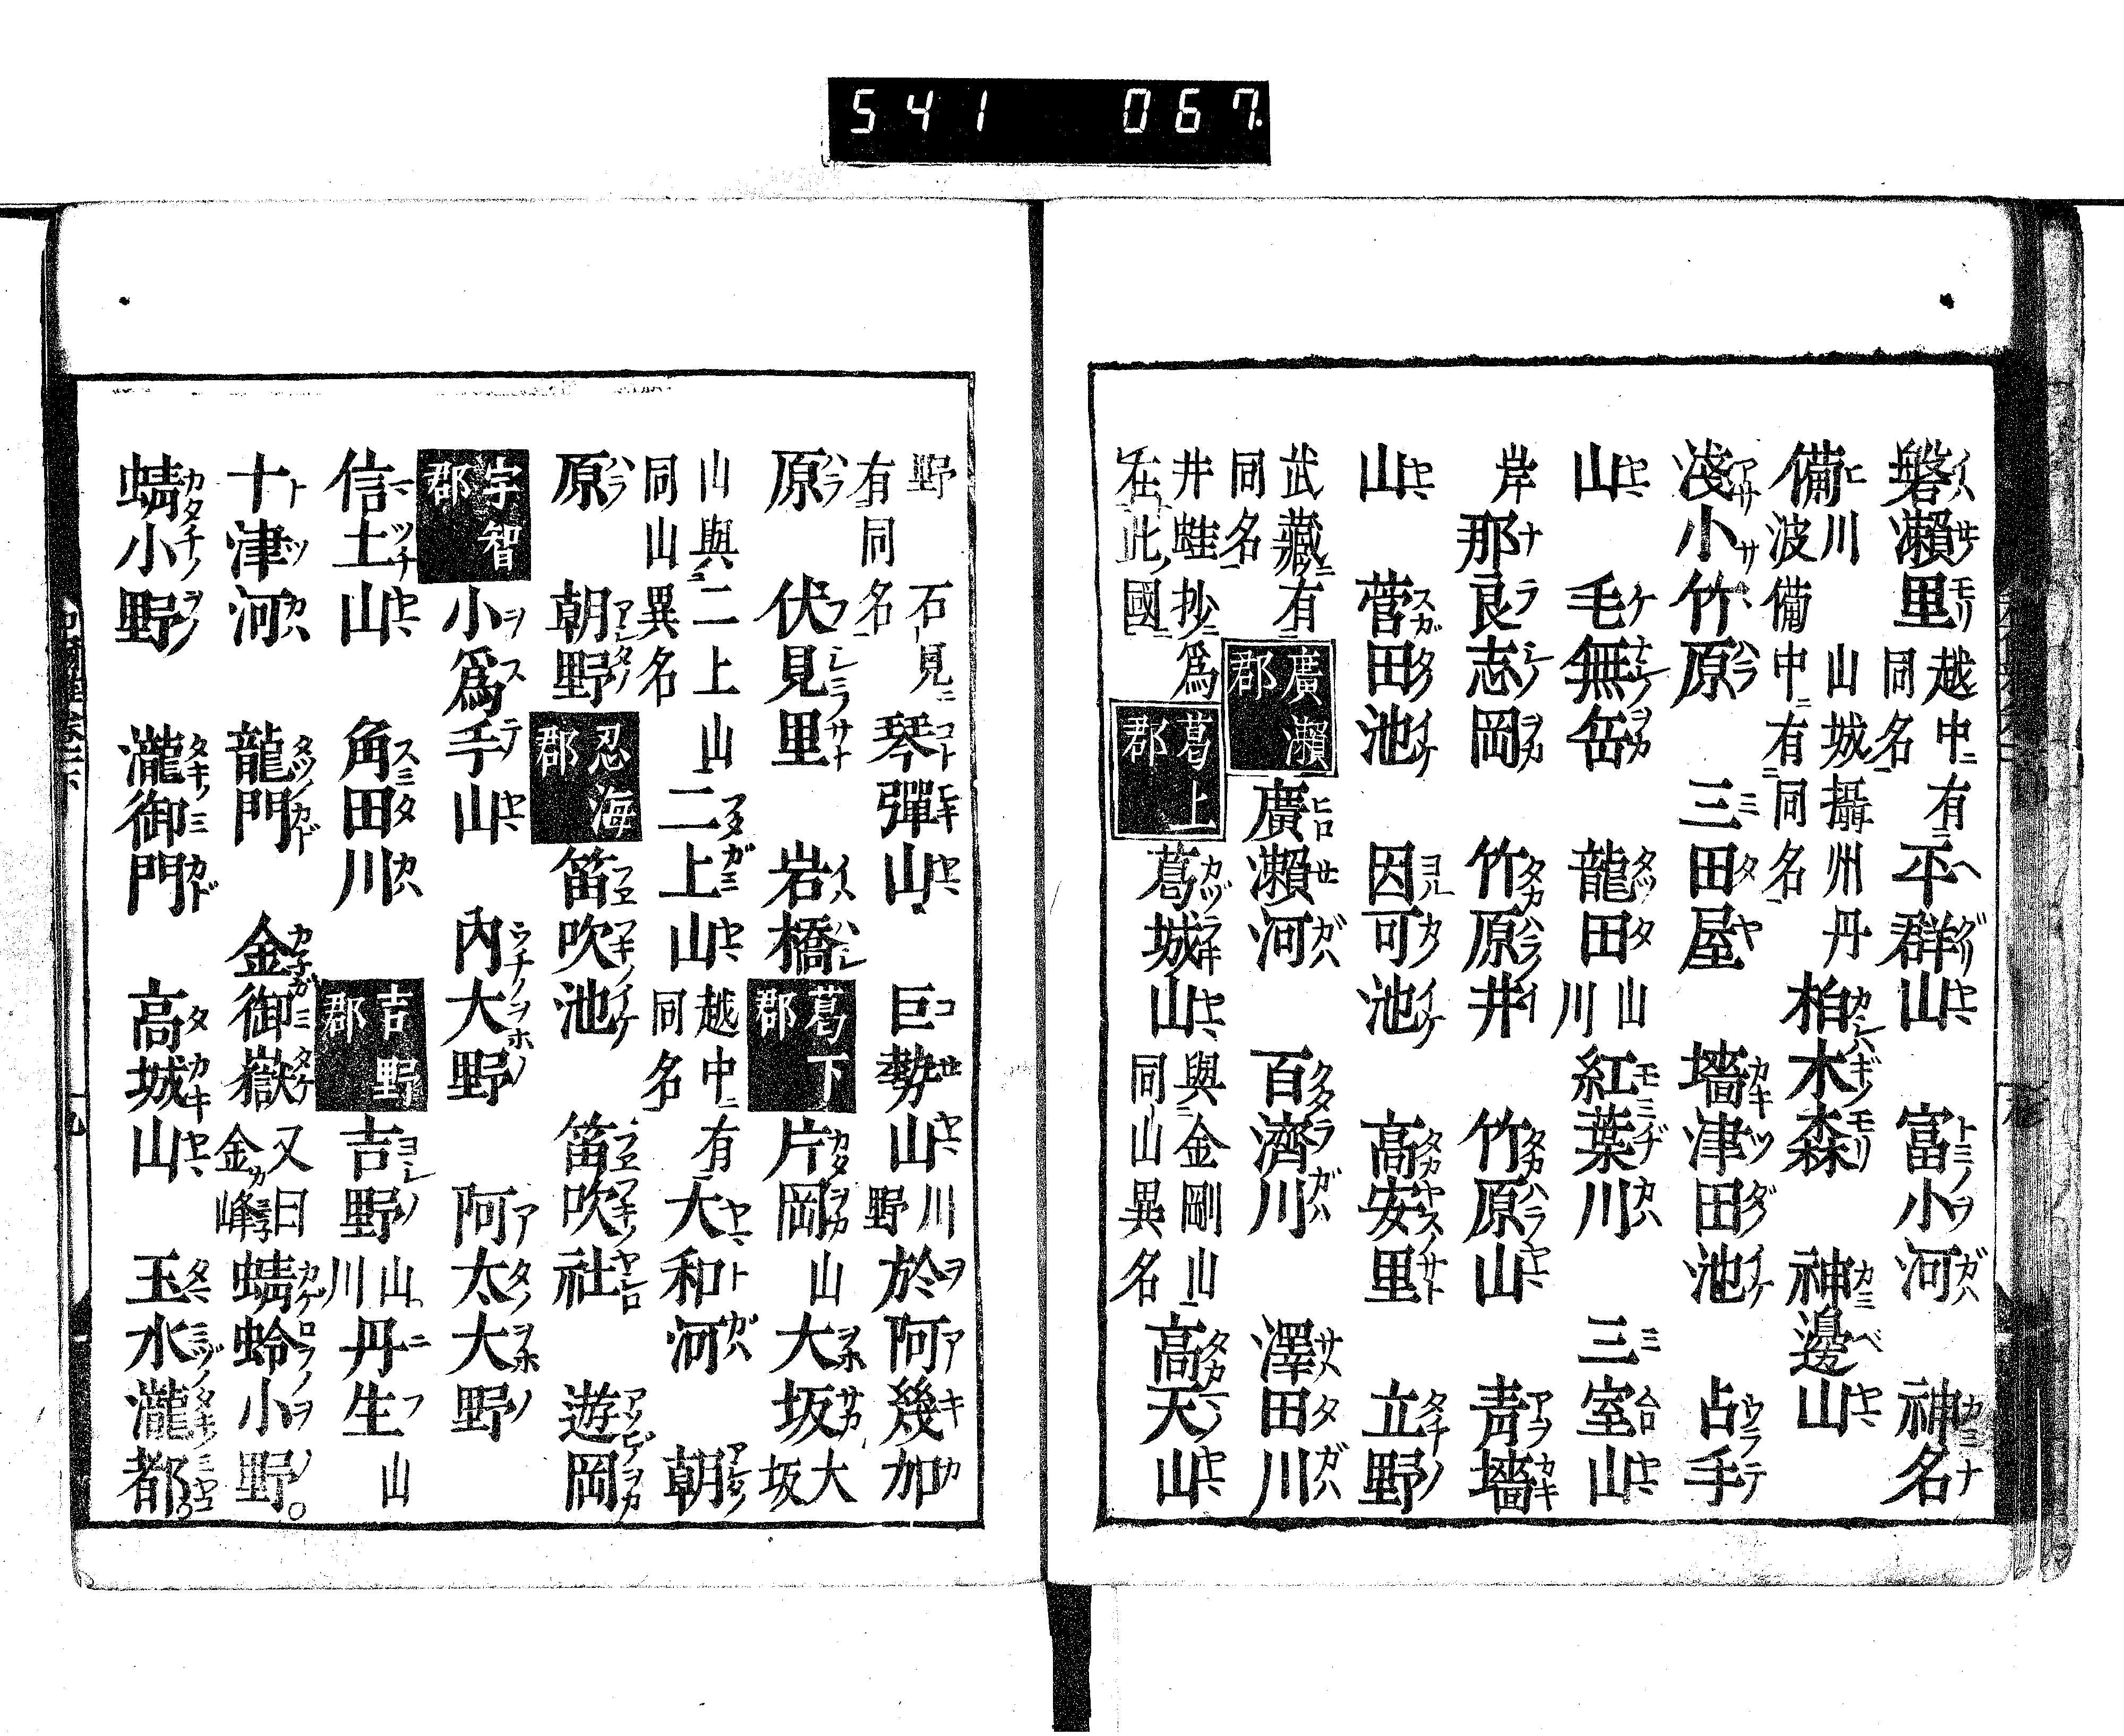 541 067
磐瀬里 越中ニ有同名 平群山 富小河 神名
備 川波 山城攝州丹備中ニ有同名 柏木森 神邊山
淺小竹原 三田屋 墻津田池 占手
山 毛無岳 龍田 山川 紅葉川 三室山
岸 那良志岡 竹原井 竹原山 青墻
山 菅田池 因可池 高安里 立野
武藏ニ有同名 廣瀬郡 廣瀬河 百濟川 澤田川
井蛙抄ニ爲在此國 葛上郡 葛城山 與金剛山同山異名 高天山
野 石見ニ有同名 琴彈山 巨勢山 川野 於阿幾加
原 伏見里 岩橋 葛下郡 片岡 山 大坂 大坂
山與二上山同山異名 二上山 越中ニ有同名 大和河 朝
原 朝野 忍海郡 笛吹池 笛吹社 遊岡
宇智郡 小爲手山 內大野 阿太大野
信土山 角田川 吉野郡 吉野 山川 丹生 山
十津河 龍門 金御嶽 又曰金峰 蜻蛉小野
蜻小野 瀧御門 高城山 玉水瀧都